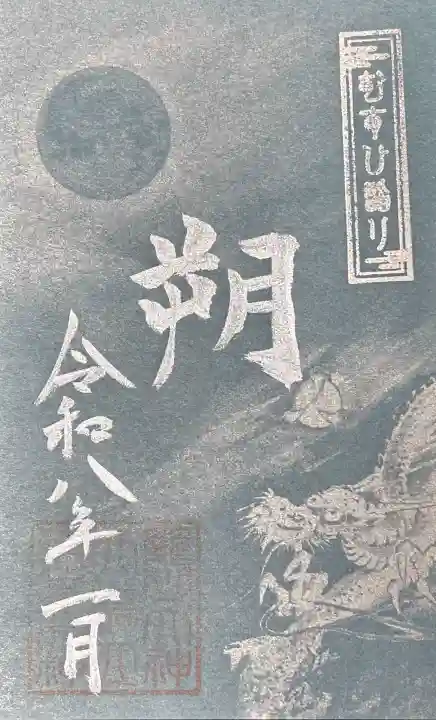 むすひ詣り
朔
令和八年一月